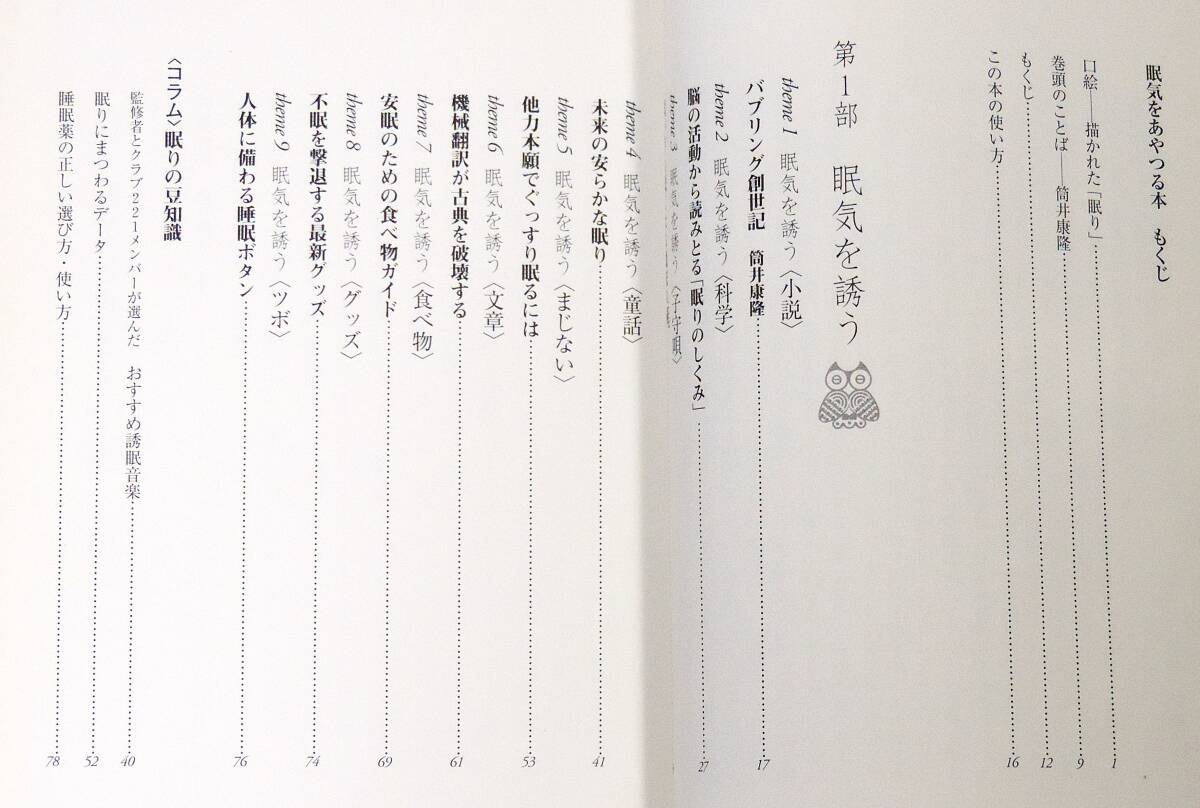 眠気をあやつる本　もくじ
口絵――描かれた「眠り」……1
巻頭のことば――筒井康隆……9
もくじ……12
この本の使い方……16
第1部　眠気を誘う
theme 1　眠気を誘う〈小説〉
バブリング創世記　筒井康隆……17
theme 2　眠気を誘う〈科学〉
脳の活動から読みとる「眠りのしくみ」……27
theme 3　眠気を誘う〈子守唄〉
theme 4　眠気を誘う〈童話〉
未来の安らかな眠り……41
theme 5　眠気を誘う〈まじない〉
他力本願でぐっすり眠るには……53
theme 6　眠気を誘う〈文章〉
機械翻訳が古典を破壊する……61
theme 7　眠気を誘う〈食べ物〉
安眠のための食べ物ガイド……69
theme 8　眠気を誘う〈グッズ〉
不眠を撃退する最新グッズ……74
theme 9　眠気を誘う〈ツボ〉
人体に備わる睡眠ボタン……76
〈コラム〉眠りの豆知識
監修者とクラブ221メンバーが選んだ　おすすめ誘眠音楽……40
眠りにまつわるデータ……52
睡眠薬の正しい選び方・使い方……78